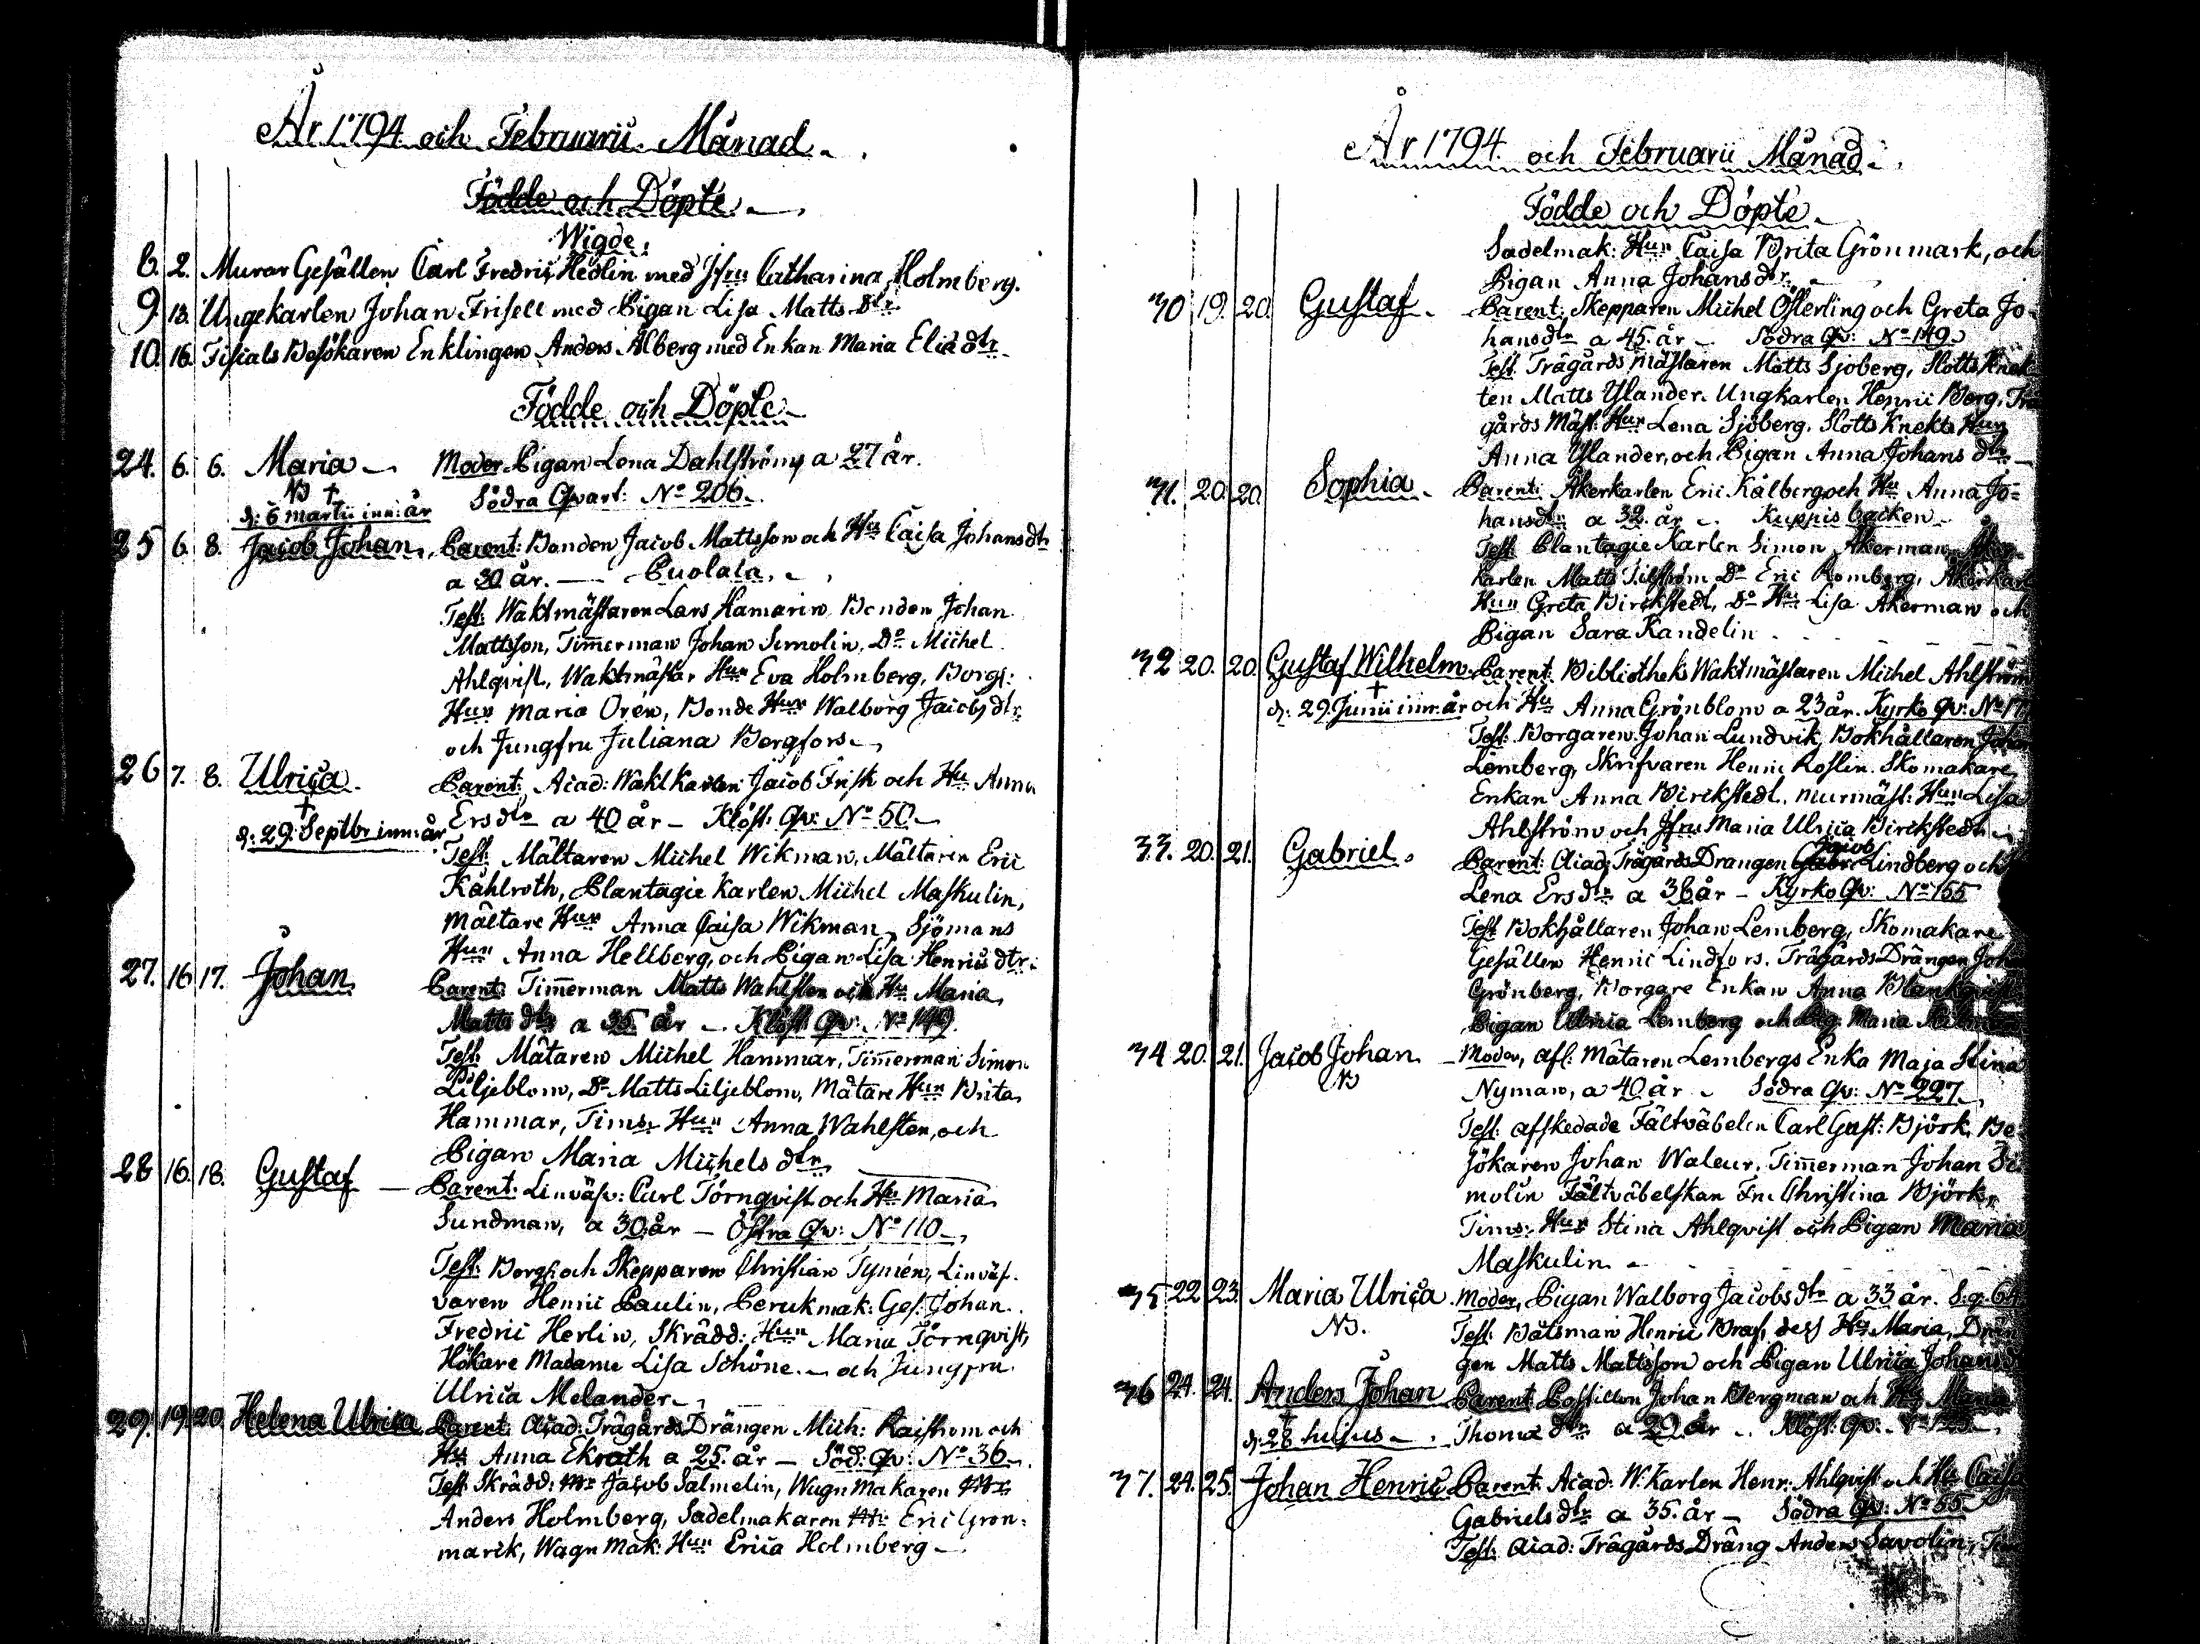 År 1794 och Februarii Månad.
Födde och Döpte
Wigde.
8. 2. Murar Gesällen Carl Fredric Hedlin med Jfru Catharina Holmberg.
9. 13. Ungekarlen Johan Frisell med Pigan Lisa Matts dtr
10. 16. Fiscals Besökaren Enklingen Anders Alberg med Enkan Maria Elia dtr
Födde och Döpte
24. 6. 6. Maria Moder Pigan Lena Dahlström a 27 år.
NB † Södra Qvart: No 206.
d: 6 martii inn: år
25 6. 8. Jacob Johan. Parent: Bonden Jacob Mattsson och Hu Caisa Johansdtr
a 30 år. Puolala.
Test: Waktmästaren Lars Hamarin Bonden Johan
Mattsson, Timerman Johan Simolin, Do Michel
Ahlqvist, Waktmästar Hun Eva Holmberg, Borgr:
Hun Maria Oren, Bonde Hun Walborg Jacobs dtr
och Jungfru Juliana Bergfors
26 7. 8. Ulrica. Parent: Acad: Wakt Karlen Jacob Frisk och Hu Anna
† Ersdtr a 40 år Klöst: Qv: No 50
d: 29. Septbr inn: år
Test: Mältaren Michel Wikman, Mältaren Eric
Kåhlroth, Plantagie Karlen Michel Maskulin,
Mältare Hun Anna Caisa Wikman, Sjömans
Hun Anna Hellberg, och Pigan Lisa Henrics dtr:
27. 16 17. Johan Parent: Timerman Matts Wahlsten och Hu Maria
Matts dtr a 35 år Klöst: Qv: No 149.
Test: Mätaren Michel Hammar, Timerman Simon
Liljeblom, Do Matts Liljeblom, Mätare Hun Brita
Hammar, Tims: Hun Anna Wahlsten, och
Pigan Maria Michels dtr
28 16. 18. Gustaf Parent: Linväfv: Carl Törnqvist och Hu Maria
Sundman, a 30 år Östra Qv: No 110
Test: Borg: och Skepparen Christian Tymén, Linväf-
varen Henric Paulin, Perukmak: Ges: Johan
Fredric Herlin, Skrädd: Hun Maria Törnqvist,
Hökare Madame Lisa Schöne och Jungfru
Ulrica Melander
29. 19. 20. Helena Ulrica Parent: Acad: Trägårds Drängen Mich: Raistrom och
Hu Anna Ekroth a 25. år Söd: Qv: No 36
Test: Skrädd: Jacob Salmelin, Wagn makaren
Anders Holmberg, Sadelmakaren Eric Grön-
mark, Wagn mak: Hun Erica Holmberg
År 1794 och Februarii Månad.
Födde och Döpte
Sadelmak: Hun Caisa Brita Grönmark, och
Pigan Anna Johansdtr
30 19. 20. Gustaf Parent: Skepparen Michel Österling och Greta Jo-
hansdtr a 45. år Södra Qv: No 149
Test: Trägårds Mästaren Matts Sjöberg, Slotts Knek
ten Matts Ylander. Ungkarlen Henric Berg, Trä
gårds Mäst: Hun Lena Sjöberg. Slotts Knekts Hun
Anna Ylander, och Pigan Anna Johans dtr
31. 20. 20. Sophia Parent: Åkerkarlen Eric Kålberg och Hu Anna Jo-
hansdtr a 32. år Kuppis backen
Test: Plantagie Karlen Simon Åkerman, Åker-
karlen Matts Do Eric Romberg, Åkerkarl
Hun Greta Birckstedt, Do Hu Lisa Åkerman och
Pigan Sara Kandelin
32 20. 20. Gustaf Wilhelm Parent: Bibliotheks Waktmästaren Michel Ahlström
†
d: 29. Junii inn: år och Hu Anna Grönblom a 23 år. Kyrko Qv: No 17
Test: Borgaren Johan Lundvik, Bokhållaren Johan
Lemberg, Skrifvaren Henric Roslin. Skomakare
Enkan Anna Birckstedt. Murmäst: Hun Lisa
Ahlström och Jfru Maria Ulrica Birckstedt
33. 20. 21. Gabriel. Parent: Acad: Trägårds Drangen Jacob Lindberg och
Lena Ersdtr a 36 år Kyrko Qv: No 155
Test: Bokhållaren Johan Lemberg, Skomakare
Gesällen Henric Lindfors. Trägårds Drängen Joha
Grönberg, Borgare Enkan Anna Blankqvist
Pigan Ulrica Lemberg och Pig: Maria
34 20. 21. Jacob Johan Moder, afl: Mätaren Lembergs Enka Maja Stina
NB Nyman, a 40 år Södra Qv: No 227
Test: afskedade Fältväbeln Carl Gust: Björk, Be-
sökaren Johan Waleur. Timerman Johan Si
molin Fältväbelskan Fru Christina Björk,
Tims: Hun Stina Ahlqvist och Pigan Maria
Maskulin
35 22 23. Maria Ulrica Moder, Pigan Walborg Jacobs dtr a 33 år. S: q: 64
NB. Test: Båtsman Henric Braf, dess Hu Maria, Drän
gen Matts Mattsson och Pigan Ulrica Johans
36 24. 24. Anders Johan Parent: Postillon Johan Bergman och Hu Maria
†
d: 28 hujus Thoma dtr a 29 år Klöst: Qv: No
37. 24. 25. Johan Henric Parent: Acad: W: Karlen Henr: Ahlqvist och Hu Caisa
Gabriels dtr a 35. år Södra Qv: No 55
Test: Acad: Trägårds Dräng Anders Savolin, Tim